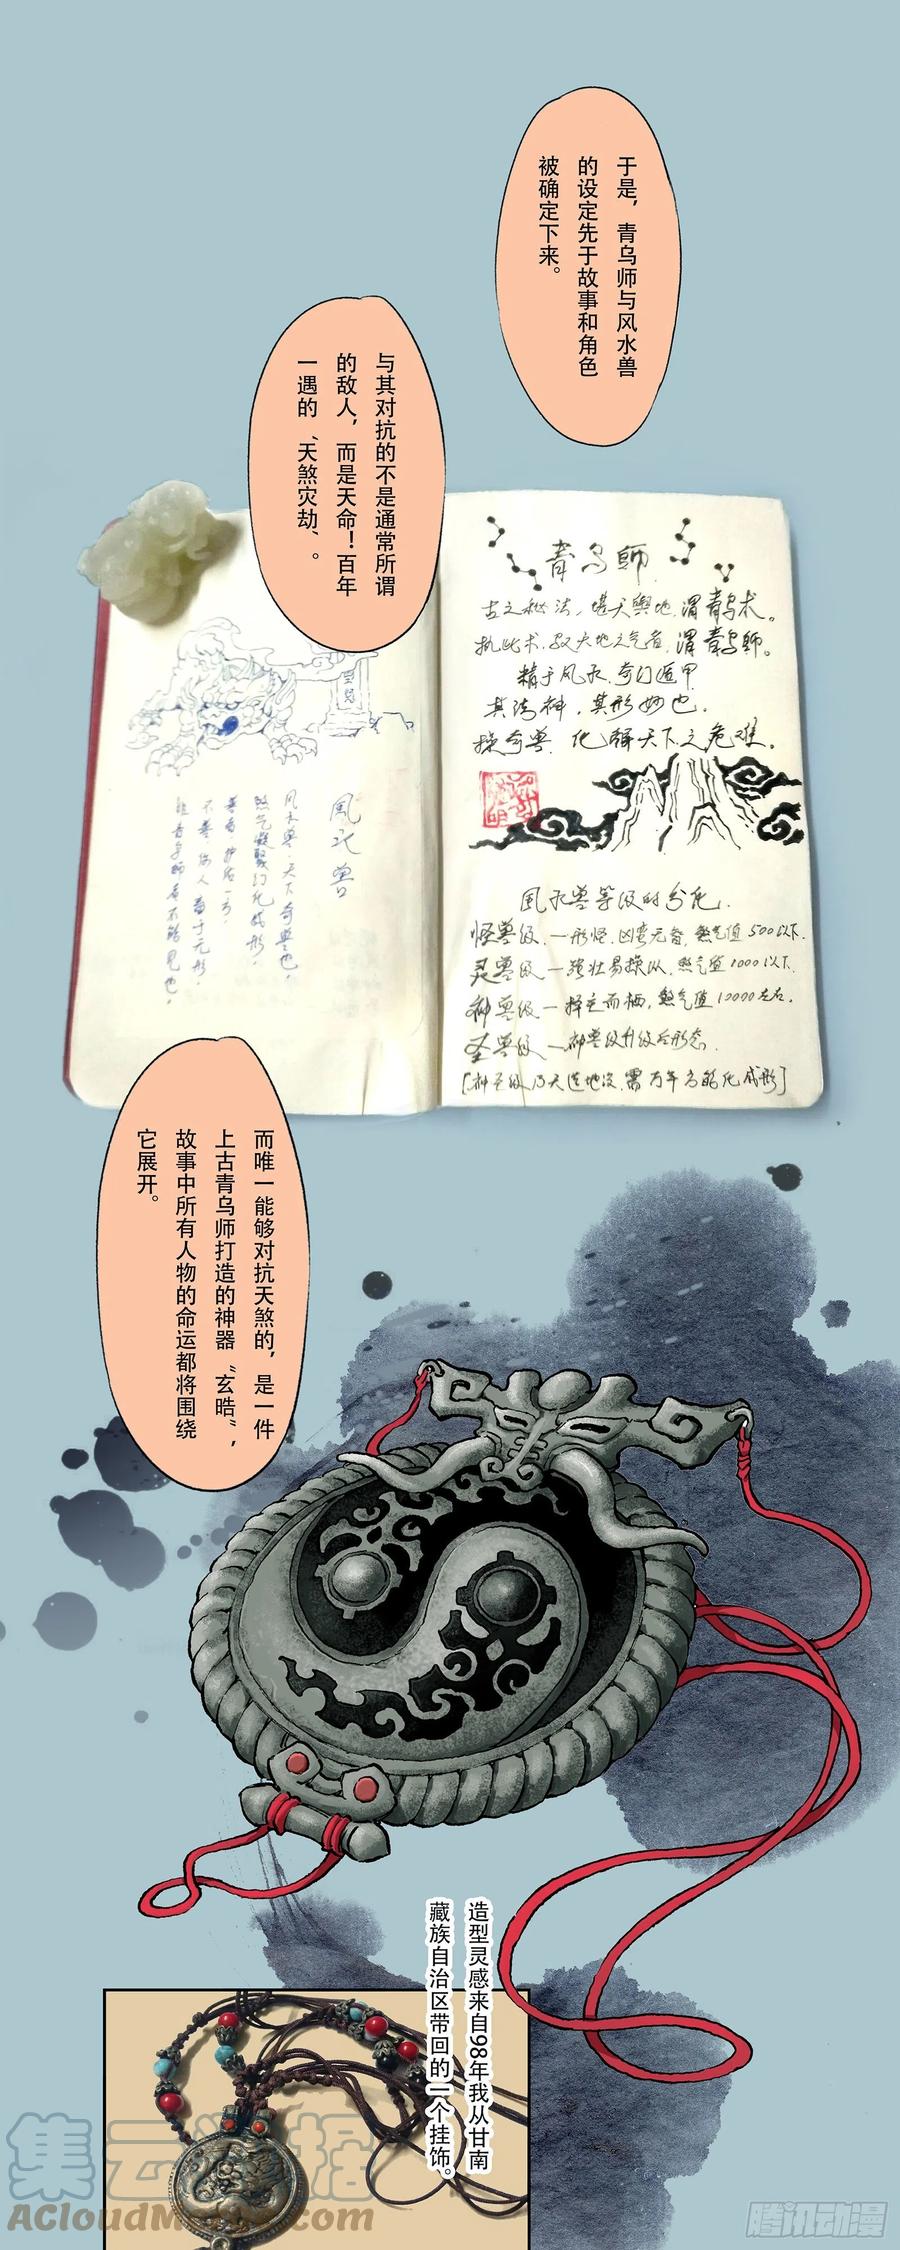 于是，青乌师与风水兽
的设定先于故事和角色
被确定下来。
与其对抗的不是通常所谓
的敌人，而是天命！百年
一遇的“天煞灾劫”。
青乌師
古之秘法，堪天輿地，謂青乌术。
执此术，驭大地之气者，謂青乌師。
精于风水，奇门遁甲
其法神，其形妙也。
操奇兽，化解天下之危难。
風水兽
风水兽，天下奇兽也，
煞气凝聚幻化成形，
善者，护佑一方，
不善，伤人畜于无形，
非青乌師者不能見也。
風水兽等级的分化
怪兽级—形怪，凶蛮无脊，煞气值500以下.
灵兽级—强壮易操纵，煞气值1000以下.
神兽级—择主而栖，煞气值10000左右.
圣兽级—神兽级升级后形态.
[神圣级乃天造地设，需万年方能化成形]
而唯一能够对抗天煞的，是一件
上古青乌师打造的神器“玄晧”，
故事中所有人物的命运都将围绕
它展开。
造型灵感来自98年我从甘南
藏族自治区带回的一个挂饰。
集云数据
ACloudMerge.com
腾讯动漫